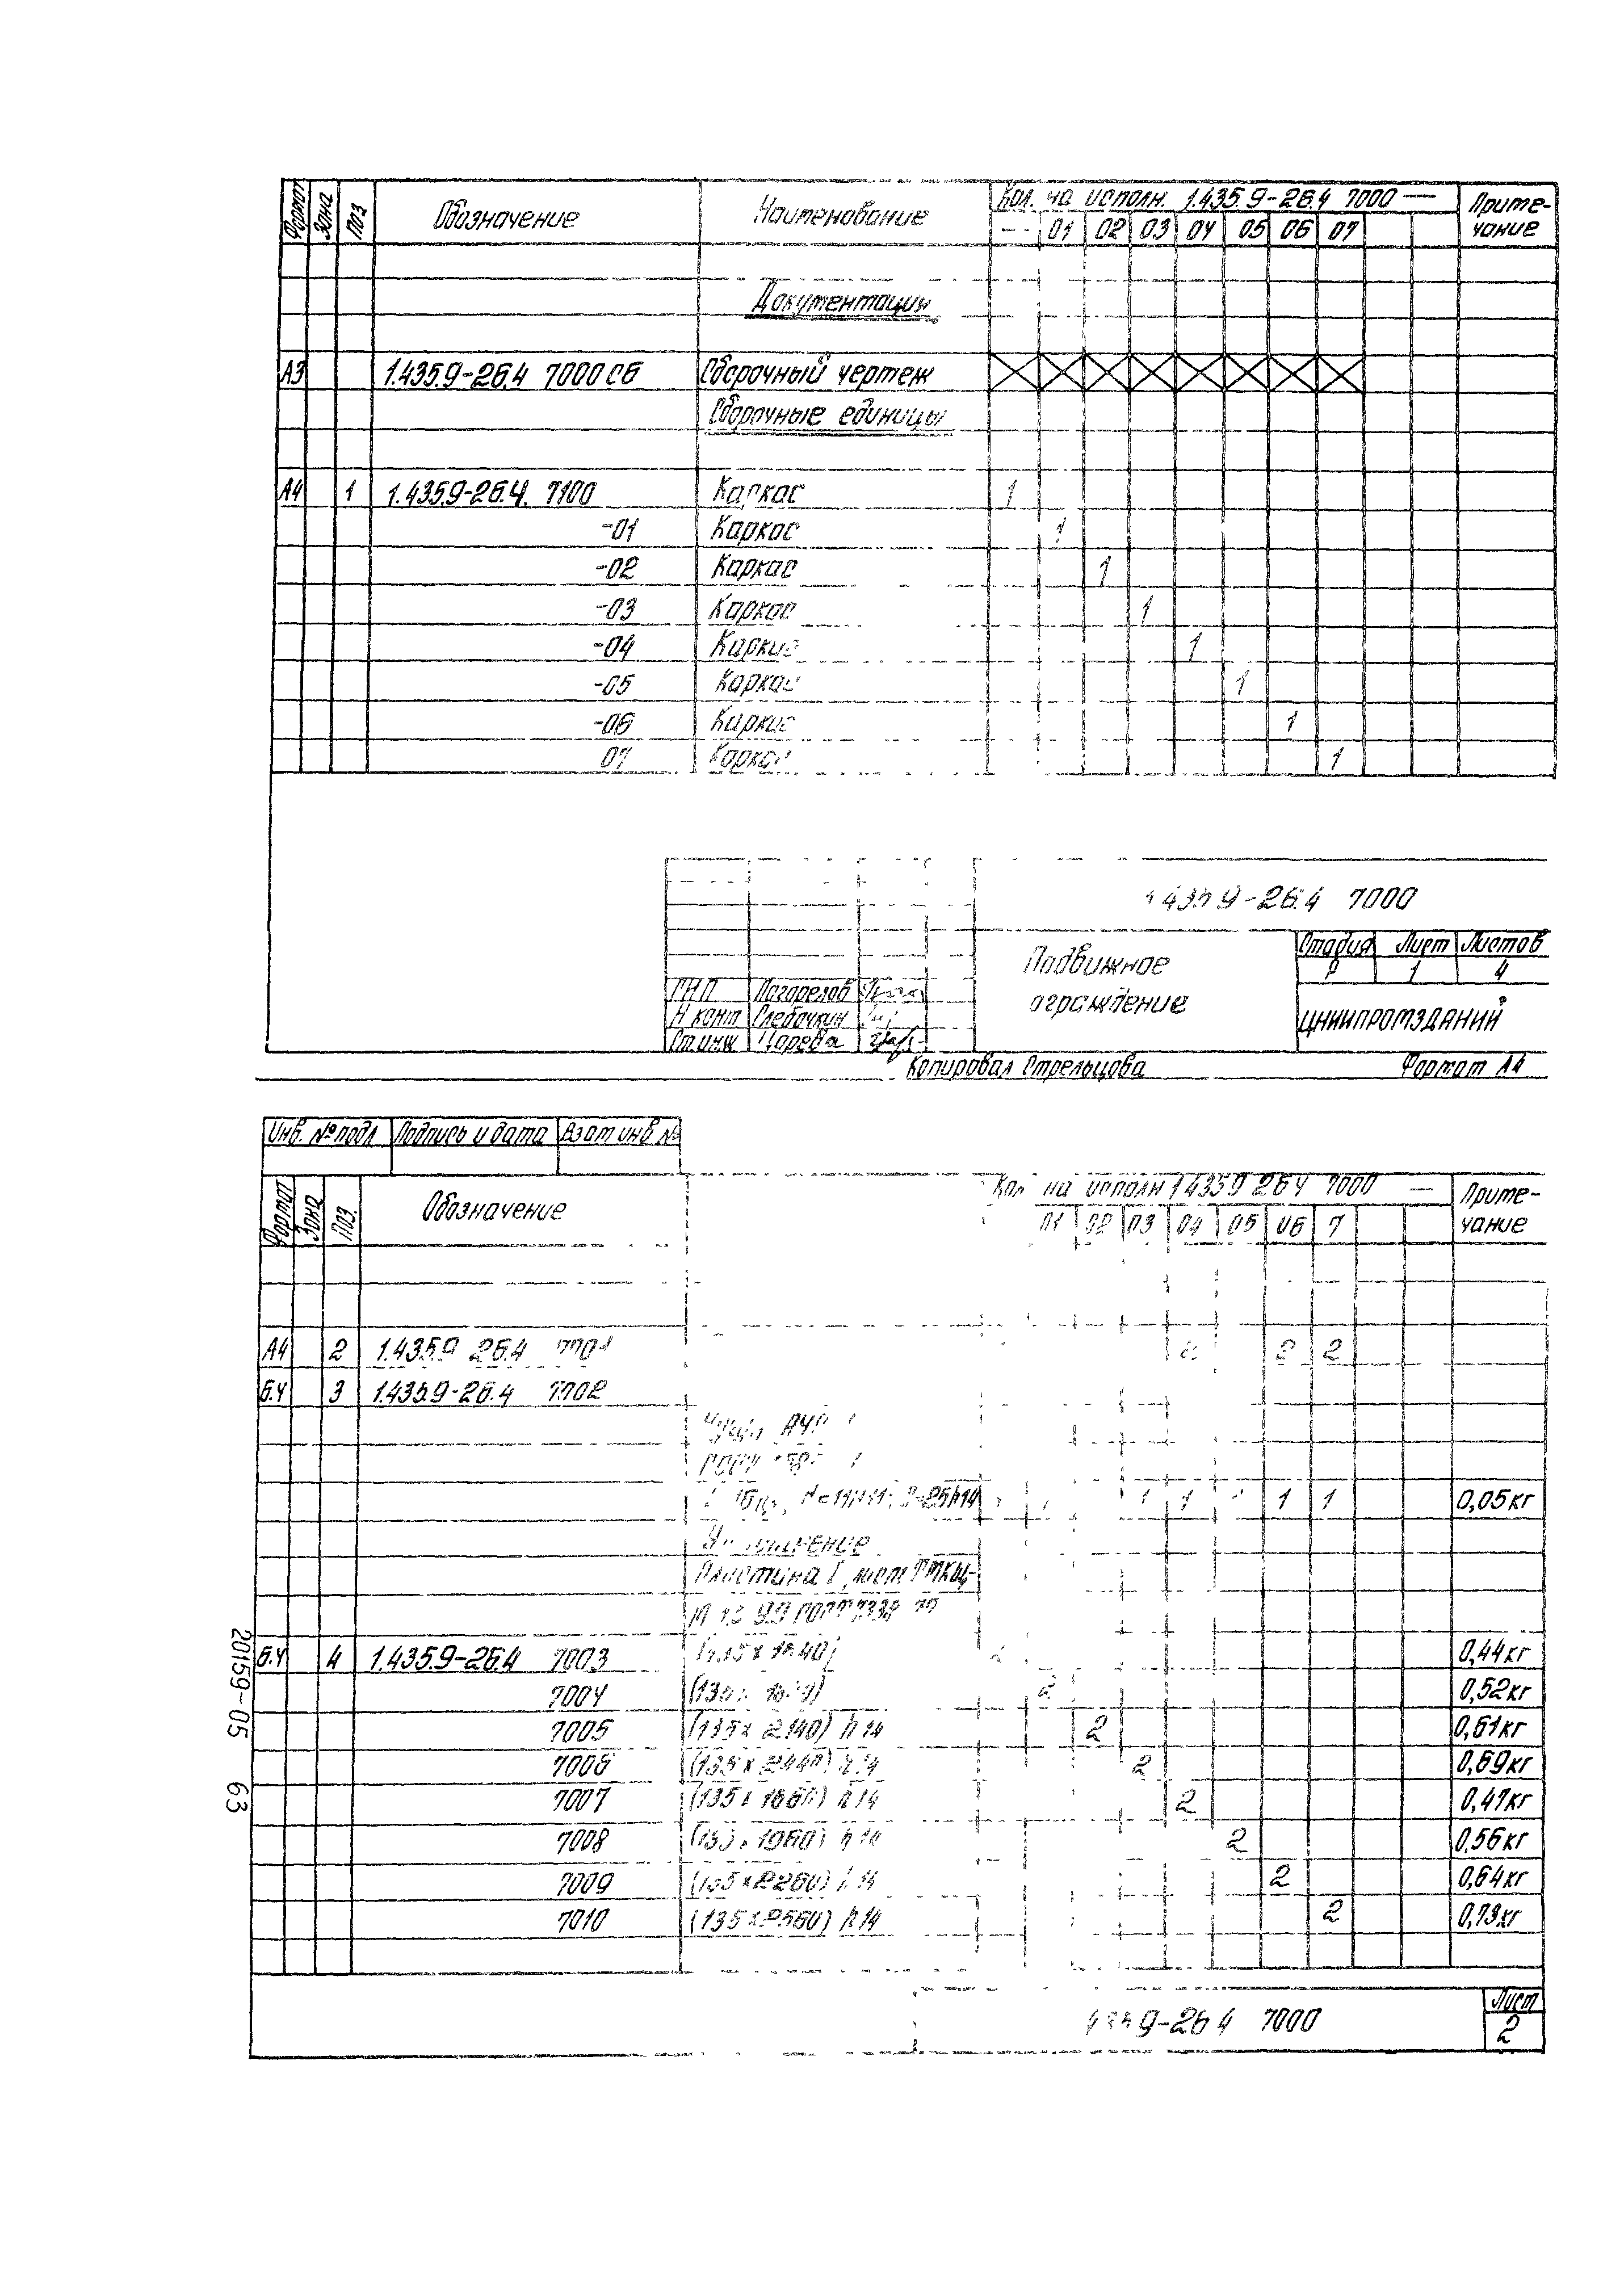 Формат Зона Поз Обозначение Наименование Кол. на исполн. 1.435.9-26.4 7000 — Приме-
чание
- 01 02 03 04 05 06 07
Документация
А3 1.435.9-26.4 7000 СБ Сборочный чертеж
Сборочные единицы
А4 1 1.435.9-26.4. 7100 Каркас 1
-01 Каркас 1
-02 Каркас 1
-03 Каркас 1
-04 Каркас 1
-05 Каркас 1
-06 Каркас 1
07 Каркас 1
435.9-26.4 7000
Подвижное
ограждение
Стадия Лист Листов
Р 1 4
ГИП Погорелов
Н конт Слебочкин
Ст.инж Царева
ЦНИИПРОМЗДАНИЙ
Копировал Стрельцова Формат А4
Инв. № подл Подпись и дата Взам инв №
Формат Зона Поз. Обозначение Кол на исполн 1435.9 26.4 7000 — Приме-
чание
01 02 03 04 05 06 7
А4 2 1.435.9 26.4 2 2
Б.Ч 3 1.435.9-26.4 7002
1 1 1 1 0,05кг
Пластина
Б.Ч 4 1.435.9-26.4 7003 0,44кг
7004 2 0,52кг
7005 (135х 2140) h 14 2 0,61кг
7006 (135 х 2440) h 14 2 0,69кг
7007 (135х 1660) h 14 2 0,47кг
7008 1960) h 14 2 0,56кг
7009 (135 х 2260) h 14 2 0,64кг
7010 (135 х 2560) h 14 2 0,73кг
9-26 4 7000
Лист
2
20159-05 63